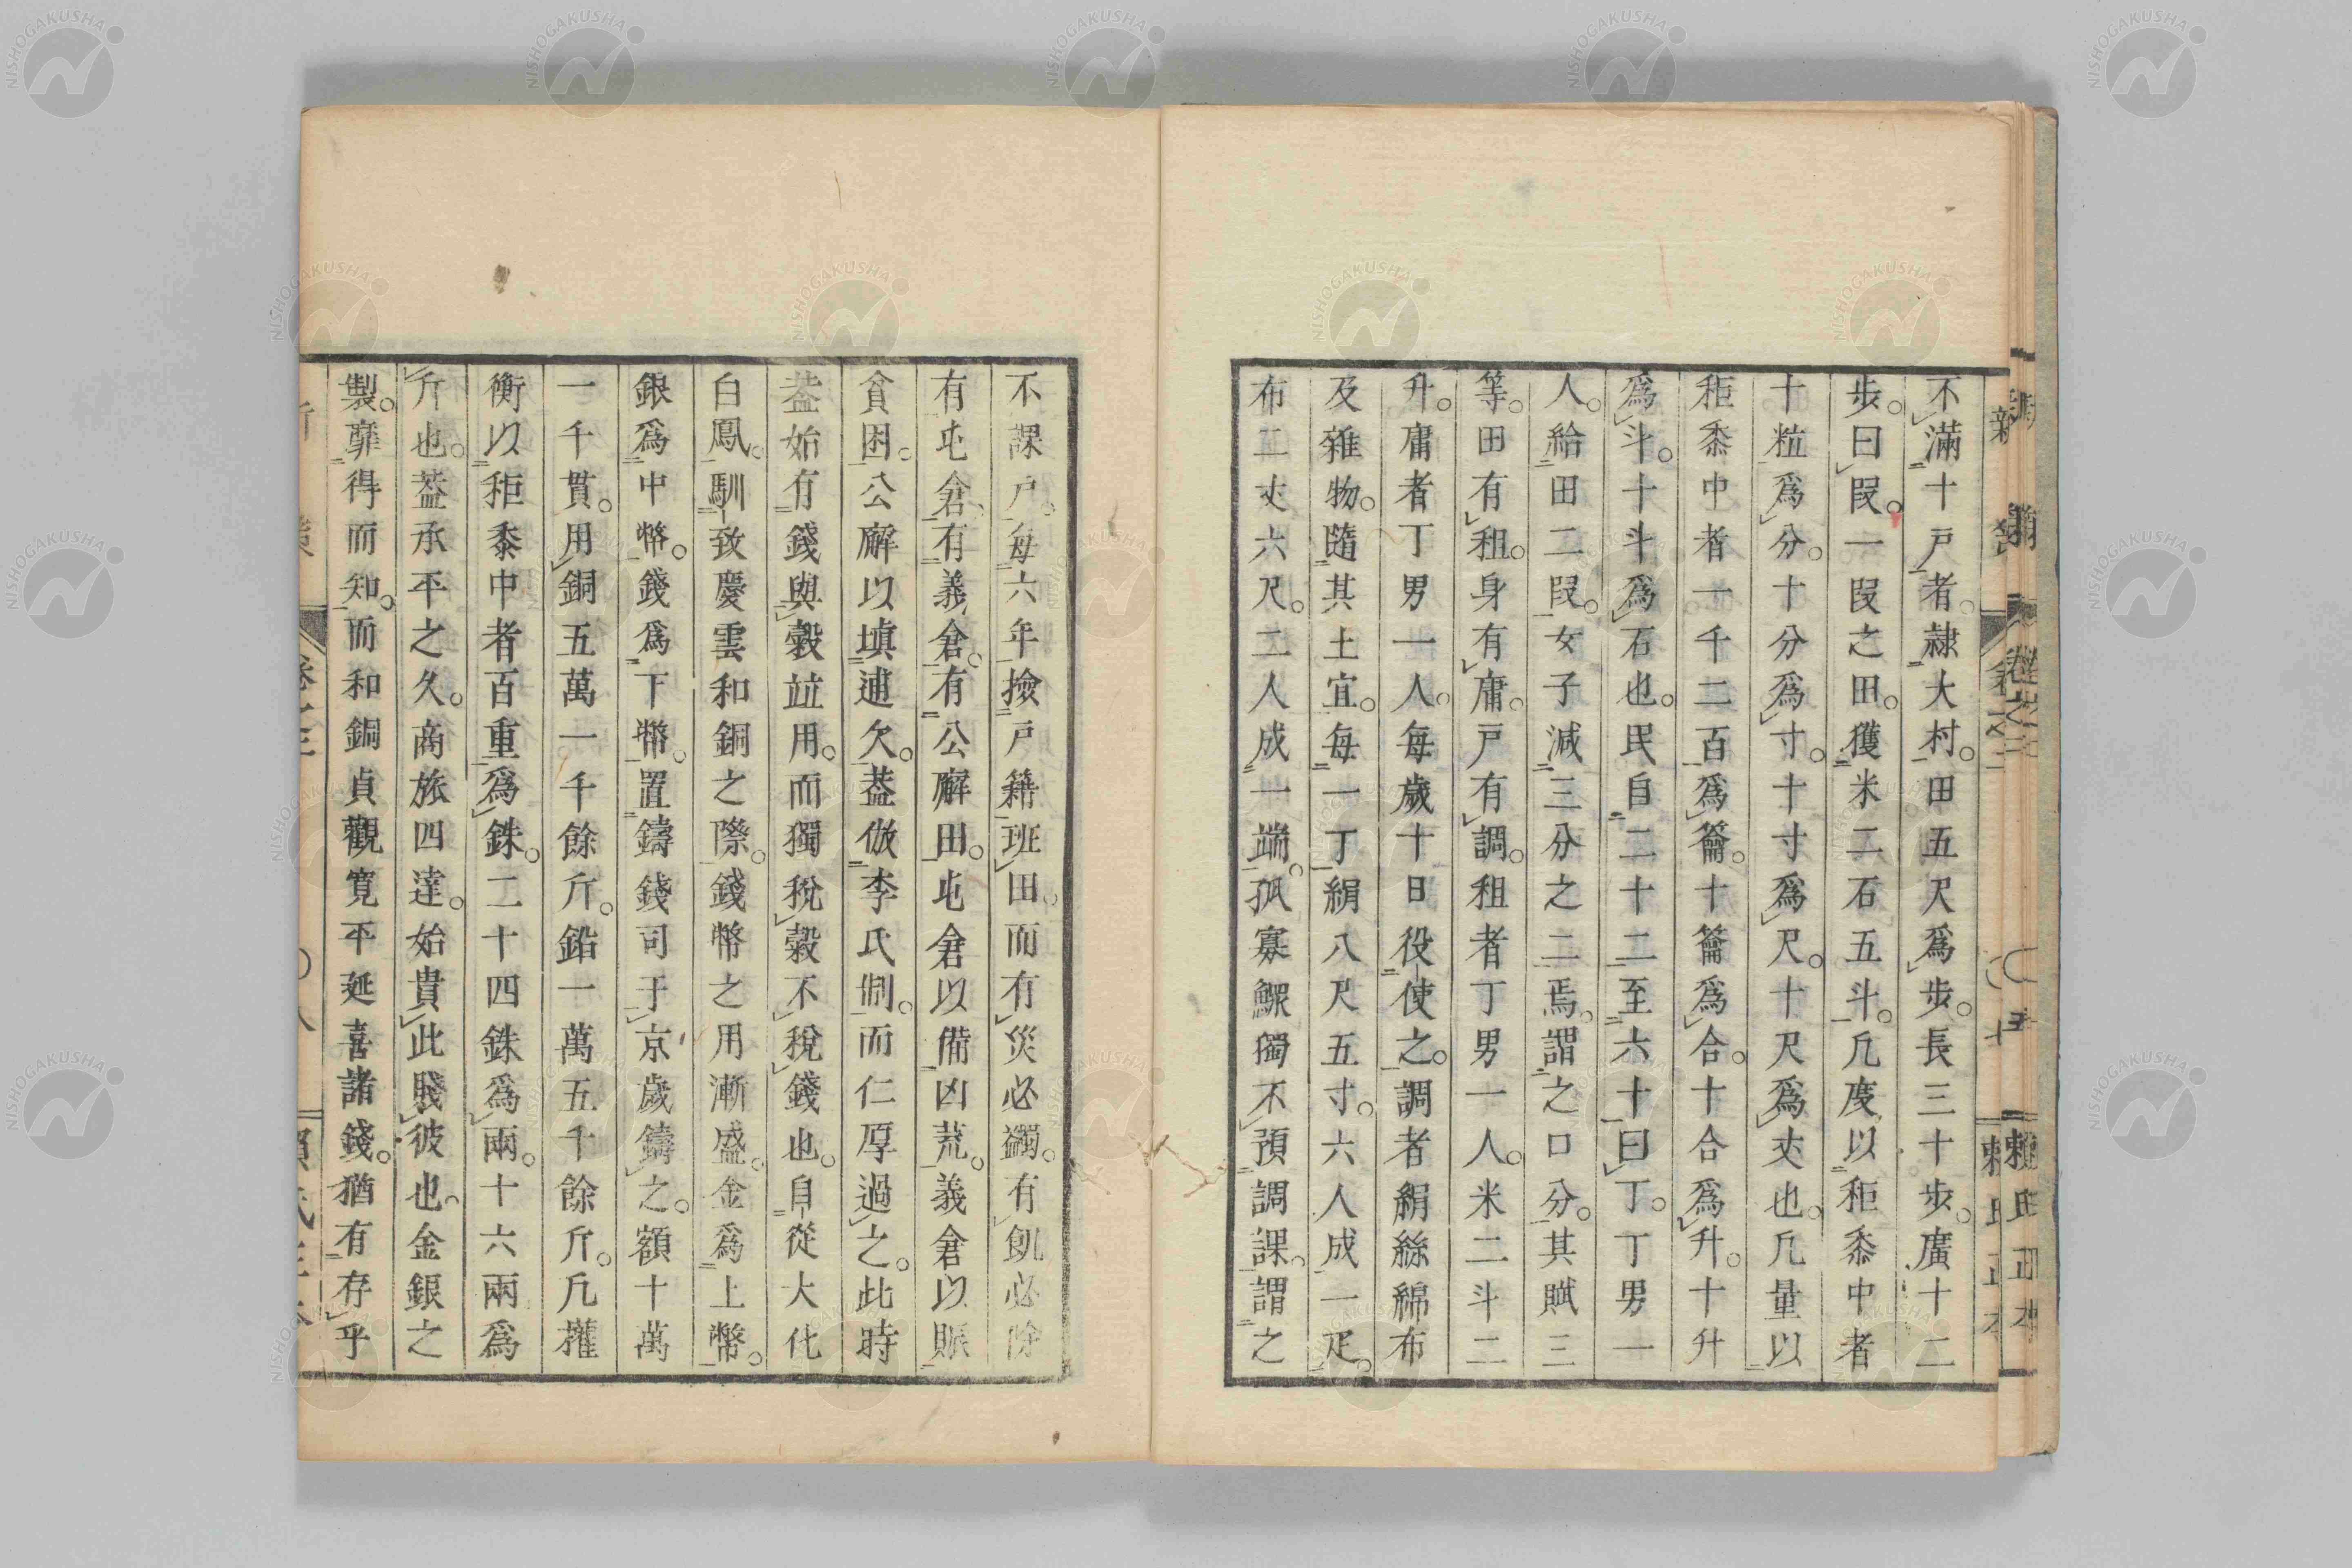 不滿十戸者。隷大村。田五尺爲步。長三十步。廣十二
步。曰段。一段之田。獲米二石五斗。凡度以秬黍中者
十粒爲分。十分爲寸。十寸爲尺。十尺爲丈也。凡量以
秬黍中者一千二百爲籥。十籥爲合。十合爲升。十升
爲斗。十斗爲石也。民自二十二至六十曰丁。丁男一
人。給田二段。女子減三分之二焉。謂之口分。其賦三
等。田有租。身有庸。戸有調。租者丁男一人。米二斗二
升。庸者丁男一人。每歲十日役使之。調者絹絲綿布
及雜物。隨其土宜。每一丁絹八尺五寸。六人成一疋。
布二丈六尺。二人成一端。孤寡鰥獨不預調課。謂之
不課戸。每六年撿戸籍班田。而有災必蠲。有飢必除
有屯倉。有義倉。有公廨田。屯倉以備凶荒。義倉以賑
貧困。公廨以塡逋欠。葢倣李氏制。而仁厚過之。此時
葢始有錢與穀竝用。而獨稅穀不稅錢也。自從大化
白鳳。馴致慶雲和銅之際。錢幣之用漸盛。金爲上幣。
銀爲中幣。錢爲下幣。置鑄錢司于京歲鑄之。額十萬
一千貫。用銅五萬一千餘斤。鉛一萬五千餘斤。凡權
衡以秬黍中者百重爲銖。二十四銖爲兩。十六兩爲
斤也。葢承平之久。商旅四達。始貴此賤彼也。金銀之
製。靡得而知。而和銅貞觀寬平延喜諸錢。猶有存乎
NISHOGAKUSHA